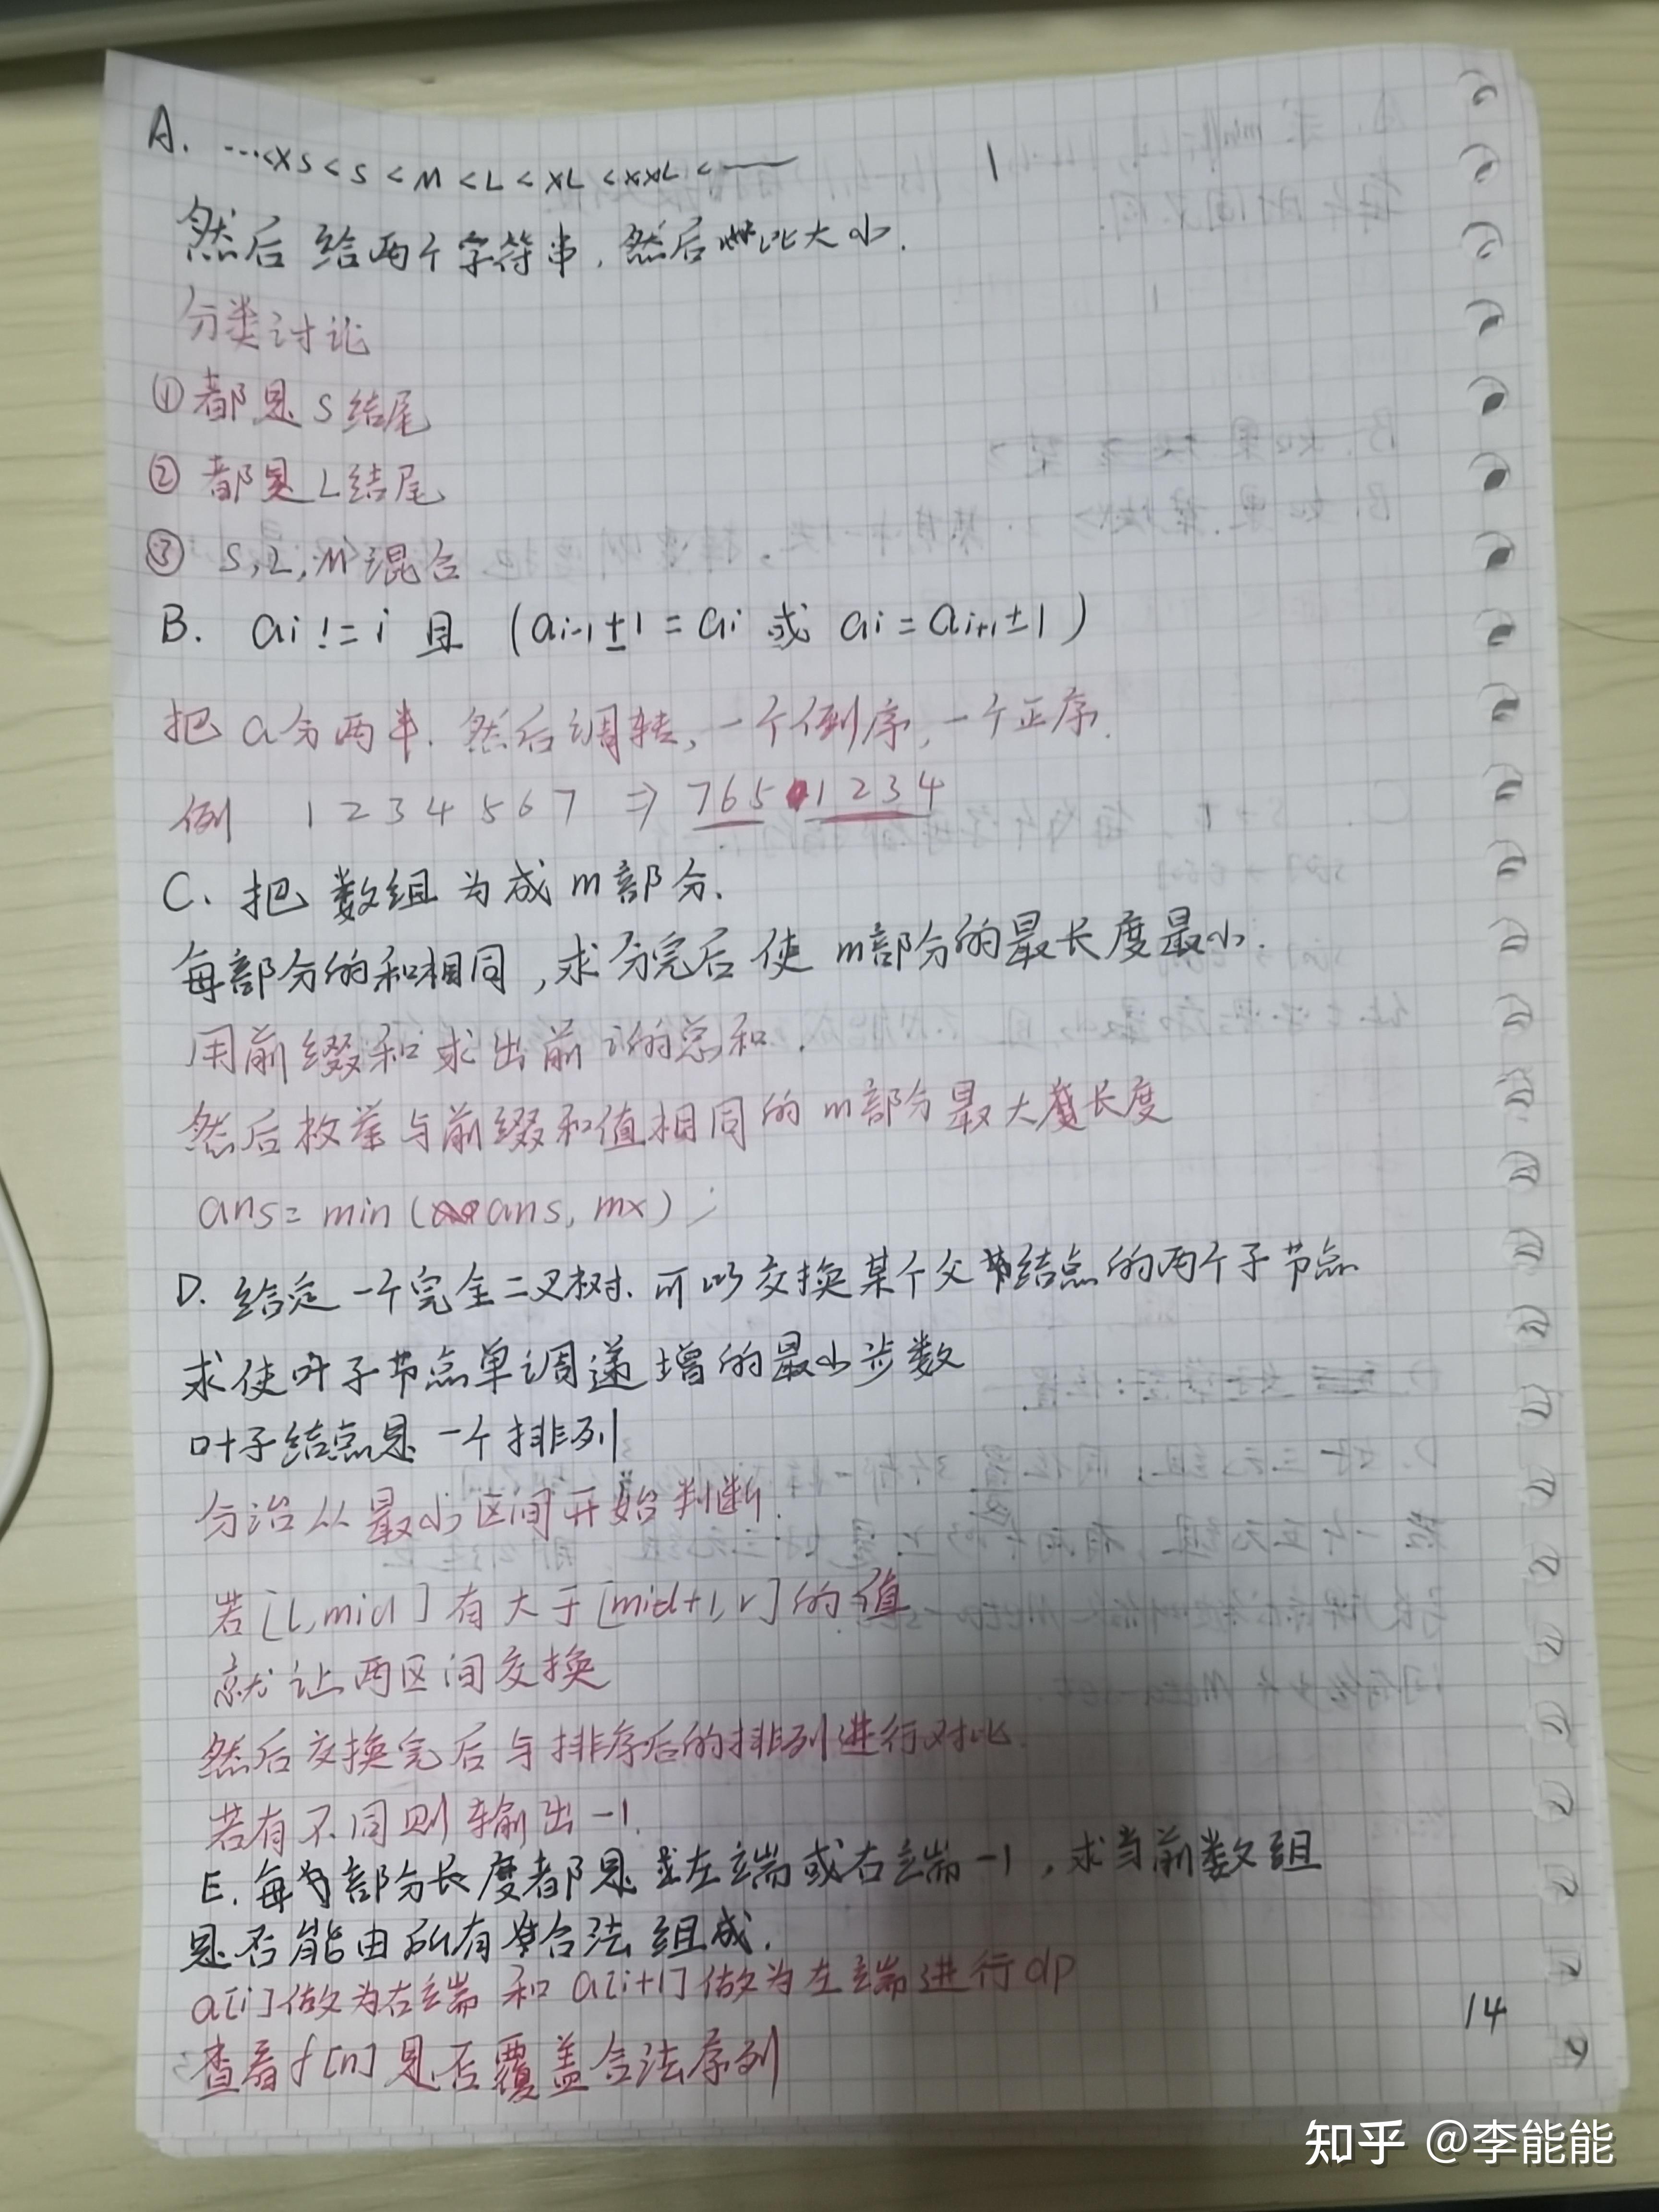 A. …<XS<S<M<L<XL<XXL<——
1
然后给两个字符串,然后比大小.
分类讨论
① 都是S结尾
② 都是L结尾
③ S,L,M混合
B. ai != i 且 (ai-1±1=ai 或 ai=ai+1±1)
把a分两半.然后调转,一个倒序,一个正序.
例 1 2 3 4 5 6 7 ⇒ 765 1234
C. 把数组为成m部分.
每部分的和相同,求分完后使m部分的最长度最小.
用前缀和求出前i的总和.
然后枚举与前缀和值相同的m部分最大长度
ans=min(ans, mx);
D. 给定一个完全二叉树.可以交换某个父结点的两个子节点
求使叶子节点单调递增的最小步数
叶子结点是一个排列
分治从最小区间开始判断.
若[l,mid]有大于[mid+1,r]的值
就让两区间交换
然后交换完后与排序后的排列进行对比.
若有不同则输出-1.
E. 每部分长度都是左端或右端-1,求当前数组
是否能由所有合法组成.
a[i]做为右端和a[i+1]做为左端进行dp
查看f[n]是否覆盖合法序列
14
知乎 @李能能